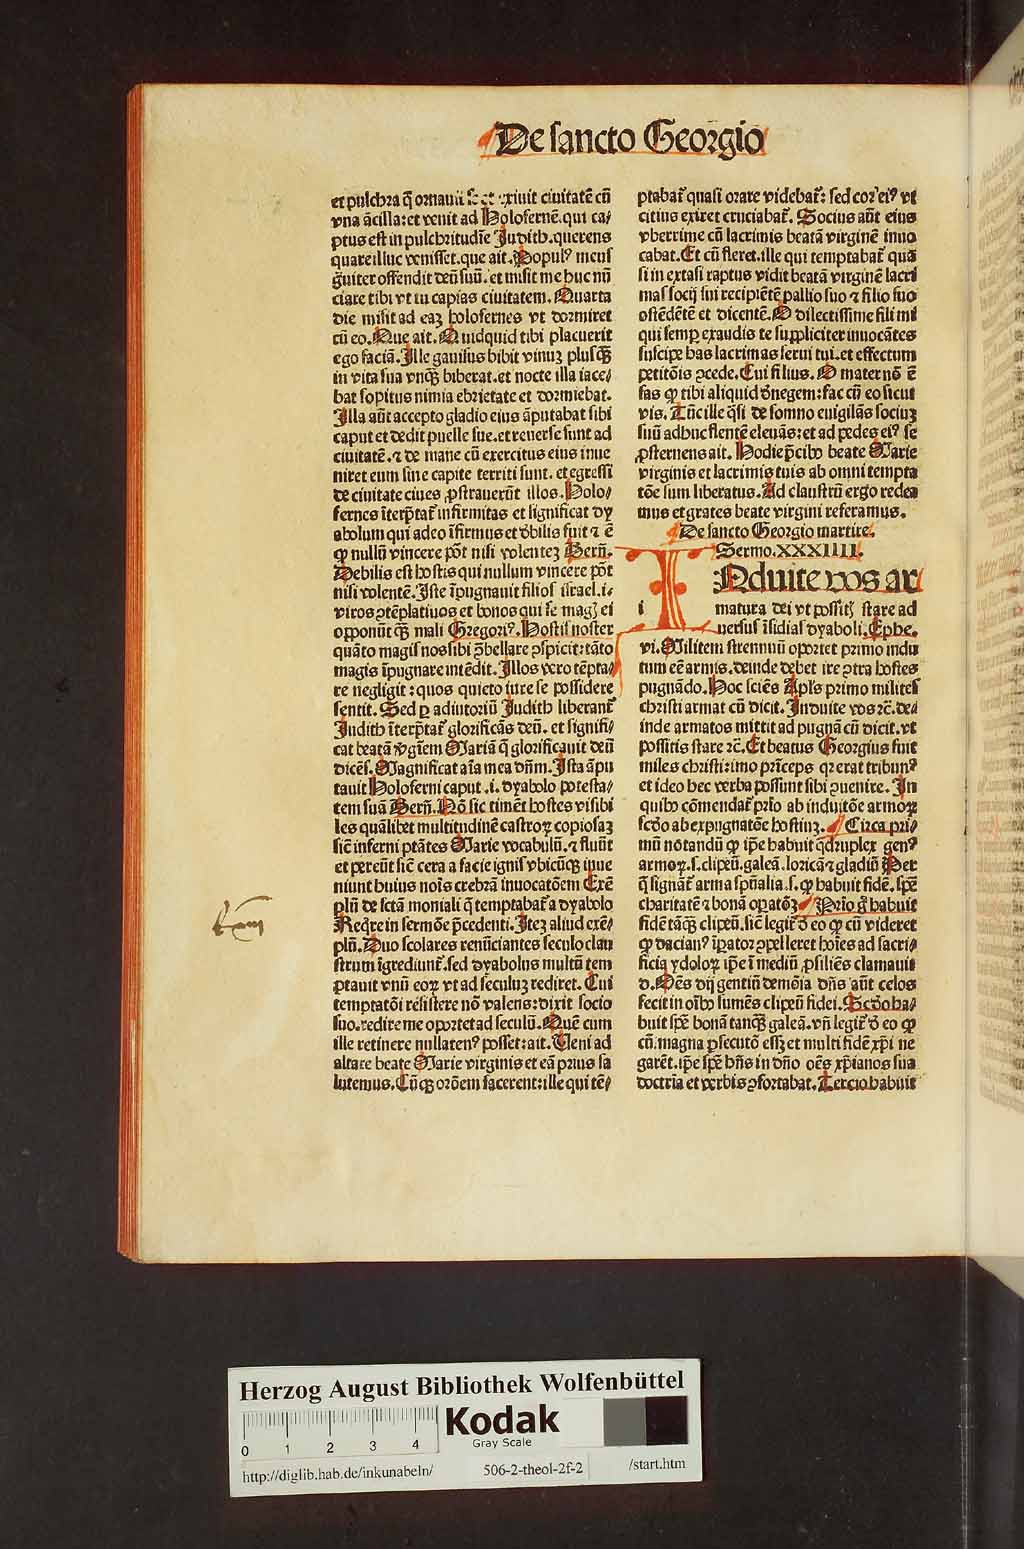 De sancto Georgio
et pulchra q̃ ornauit se et exiuit ciuitatē cū
vna ācilla: et venit ad Holofernē. qui ca⸗
ptus est in pulchritudīe Judith. querens
quare illuc venisset. que ait. Popul⁹ meus
g̃uiter offendit deū suū. et misit me huc nū
ciare tibi vt tu capias ciuitatem. Quarta
die misit ad eaʒ holofernes vt dormiret
cū eo. Que ait. Quidquid tibi placuerit
ego faciā. Ille gauisus bibit vinuʒ plusqʒ̃
in vita sua vnqʒ̃ biberat. et nocte illa iace⸗
bat sopitus nimia ebrietate et dormiebat.
Illa aūt accepto gladio eius āputabat sibi
caput et dedit puelle sue. et reuerse sunt ad
ciuitatē. ⁊ de mane cū exercitus eius inue
niret eum sine capite territi sunt. et egressi
de ciuitate ciues ꝓstrauerūt illos. Holo⸗
fernes īterp̃tat̃ infirmitas et significat dy
abolum qui adeo īfirmus et d̃bilis fuit ⁊ ē
ꝙ nullū vincere põt nisi volenteʒ Berñ.
Debilis est hostis qui nullum vincere põt
nisi volentē. Iste īpugnauit filios israel. i⸗
viros ꝯtēplatiuos et bonos qui se magʒ ei
opponūt qʒ̃ mali Gregori⁹. Hostis noster
quāto magis nos sibi p̃bellare ꝯspicit: tāto
magis īpugnare intēdit. Illos vero tēpta⸗
re negligit: quos quieto iure se possidere
sentit. Sed ꝑ adiutoriū Judith liberant̃
Judith īterp̃tat̃ glorificās deū. et signifi⸗
cat beatā v̓gīem Mariā q̃ glorificauit deū
dicēs. Magnificat aīa mea dñm. Ista āpu
tauit Holoferni caput .i. dyabolo potesta⸗
tem suā Berñ. Nō sic timēt hostes visibi
les quālibet multitudinē castroꝝ copiosaʒ
sic̃ inferni ptātes Marie vocabulū. ⁊ fluūt
et pereūt sic̃ cera a facie ignis vbicūqʒ inue
niunt huius noīs crebrā inuocatōem Exē
plū de sctā moniali q̃ temptabat̃ a dyabolo
Req̃re in sermōe p̃cedenti. Iteʒ aliud exē⸗
plū. Duo scolares renūciantes seculo clau
strum īgrediunt̃. sed dyabolus multū tem
ptauit vnū eoꝝ vt ad seculuʒ rediret. Cui
temptatōi resistere nō valens: dixit socio
suo. redire me oportet ad seculū. Quē cum
ille retinere nullaten⁹ posset: ait. Ueni ad
altare beate Marie virginis et eā prius sa
lutemus. Cūqʒ orōem facerent: ille qui tē⸗
ptabat̃ quasi orare videbat̃: sed cor ei⁹ vt
citius exiret cruciabat̃. Socius aūt eius
vberrime cū lacrimis beatā virginē inuo
cabat. Et cū fleret. ille qui temptabat̃ qua
si in extasi raptus vidit beatā virginē lacri
mas socij sui recipiētē pallio suo ⁊ filio suo
ostēdētē et dicentē. O dilectissime fili mi
qui semꝑ exaudis te suppliciter inuocātes
suscipe has lacrimas serui tui. et effectum
petitōis ꝯcede. Cui filius. O mater nō ē
fas ꝙ tibi aliquid d̓negem: fac cū eo sicut
vis. Tūc ille q̃si de somno euigilās sociuʒ
suū adhuc flentē eleuās: et ad pedes ei⁹ se
ꝓsternens ait. Hodie p̃cibꝰ beate Marie
virginis et lacrimis tuis ab omni tempta
tōe sum liberatus. Ad claustrū ergo redea
mus et grates beate virgini referamus.
De sancto Georgio martire.
Sermo. XXXIIII.
INduite vos ar
i matura dei vt possitꝭ stare ad
uersus īsidias dyaboli. Ephe.
vi. Militem strennuū oportet primo indu
tum eē armis. deinde debet ire ꝯtra hostes
pugnādo. Hoc sciēs Apl's primo milites
christi armat cū dicit. Induite vos ⁊c̃. de⸗
inde armatos mittit ad pugnā cū dicit. vt
possitis stare ⁊c̃. Et beatus Georgius fuit
miles christi: imo prīceps qꝛ erat tribun⁹
et ideo hec verba possunt sibi ꝯuenire. In
quibꝰ cōmendat̃ p̓rio ab induitōe armoꝝ
scd̓o ab expugnatōe hostiuʒ. Circa pri⸗
mū notandū ꝙ ip̃e habuit q̃druplex gen⁹
armoꝝ. s. clipeū. galeā. loricā ⁊ gladiū Per
q̃ signāt̃ arma spūalia. s. ꝙ habuit fidē. spē
charitatē ⁊ bonā oꝑatōʒ Prio g̊ habuit
fidē tāqʒ̃ clipeū. sic̃ legit̃ d̓ eo ꝙ cū videret
ꝙ dacian⁹ īꝑator ꝯpelleret hoīes ad sacri⸗
ficia ydoloꝝ ip̃e ī mediū ꝓsiliēs clamauit
d. Oēs dij gentiū demōia dñs aūt celos
fecit in oībꝰ sumēs clipeū fidei. Scd̓o ha⸗
buit spē bonā tanqʒ̃ galeā. vñ legit̃ d̓ eo ꝙ
cū magna ꝑsecutō essʒ et multi fidē xp̃i ne
garēt. ip̃e spē hñs in dño oēs xp̃ianos sua
doctrīa et verbis ꝯfortabat. Tercio habuit
Herzog August Bibliothek Wolfenbüttel
0 1 2 3 4
Kodak
Gray Scale
http://diglib.hab.de/inkunabeln/ 506-2-theol-2f-2 /start.htm